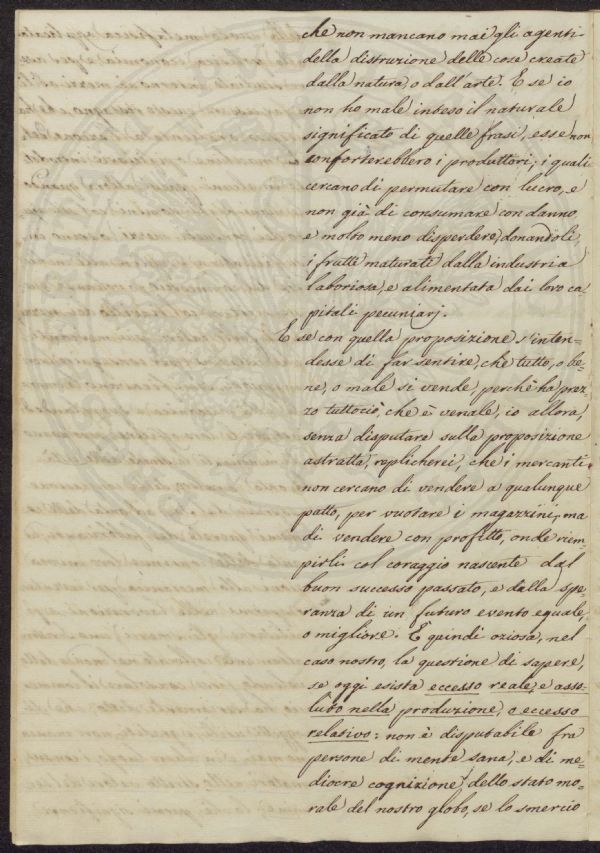 che non mancano mai gli agenti
della distruzione delle cose create
dalla natura, o dall'arte. E se io
non ho male inteso il naturale
significato di quelle frasi, esse non
conforterebbero i produttori, i quali
cercano di permutare con lucro, e
non già di consumare con danno,
e molto meno disperdere, donandoli,
i frutti maturati dalla industria
laboriosa, e alimentata dai loro ca-
pitali pecuniarj.
E se con quella proposizione s'inten-
desse di far sentire, che tutto, o be-
ne, o male si vende, perchè ha prez-
zo tuttociò, che è venale, io allora,
senza disputare sulla proposizione
astratta, replicherei, che i mercanti
non cercano di vendere a qualunque
patto, per vuotare i magazzini, ma
di vendere con profitto, onde riem-
pirli col coraggio nascente dal
buon successo passato, e dalla spe-
ranza di un futuro evento eguale,
o migliore. È quindi oziosa, nel
caso nostro, la questione di sapere,
se oggi esista eccesso reale, e asso-
luto nella produzione, o eccesso
relativo: non è disputabile fra
persone di mente sana, e di me-
diocre cognizione dello stato mo-
rale del nostro globo, se lo smercio